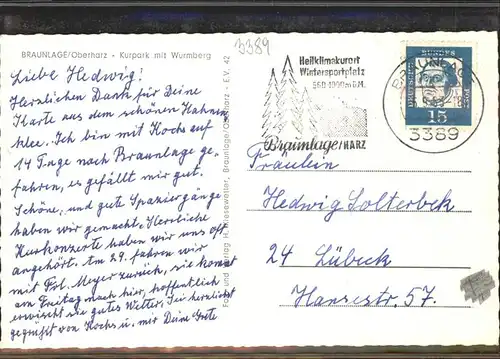 BRAUNLAGE/Oberharz - Kurpark mit Wurmberg
3389
Liebe Hedwig!
Herzlichen Dank für Deine
Karte aus dem schönen Hahnen-
klee. Ich bin mit Kochs auf
14 Tage nach Braunlage ge-
fahren, es gefällt mir gut.
Schöne, und gute Spaziergänge
haben wir gemacht. Herrliche
Kurkonzerte haben wir uns oft
angehört. Am 29. fahren wir
mit Frl. Meyer zurück, sie kommt
am Freitag nach hier, hoffentlich
erwischt sie gutes Wetter. Sei herzlichst
gegrüßt von Kochs u. mir Deine Grete
Verlag H. Braunlage/Oberharz - E.V. 42
Heilklimakurort
Wintersportplatz
560-1000m ü.M.
Braunlage/HARZ
DEUTSCHE
BUNDES
POST
15
BRAUNLAGE
3389
Fräulein
Hedwig Lolterbek
24 Lübeck
Hansestr. 57.